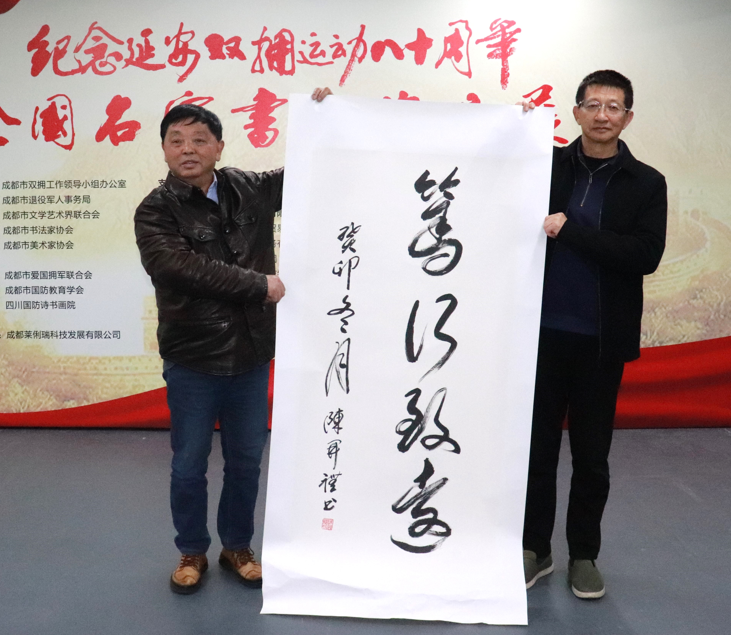 纪念延安双拥运动八十周年
全國名家書
成都市双拥工作领导小组办公室
成都市退役军人事务局
成都市文学艺术界联合会
成都市书法家协会
成都市美术家协会
成都市爱国拥军联合会
成都市国防教育学会
四川国防诗书画院
成都莱俐瑞科技发展有限公司
篤行致遠
癸卯冬月
陳开禮书